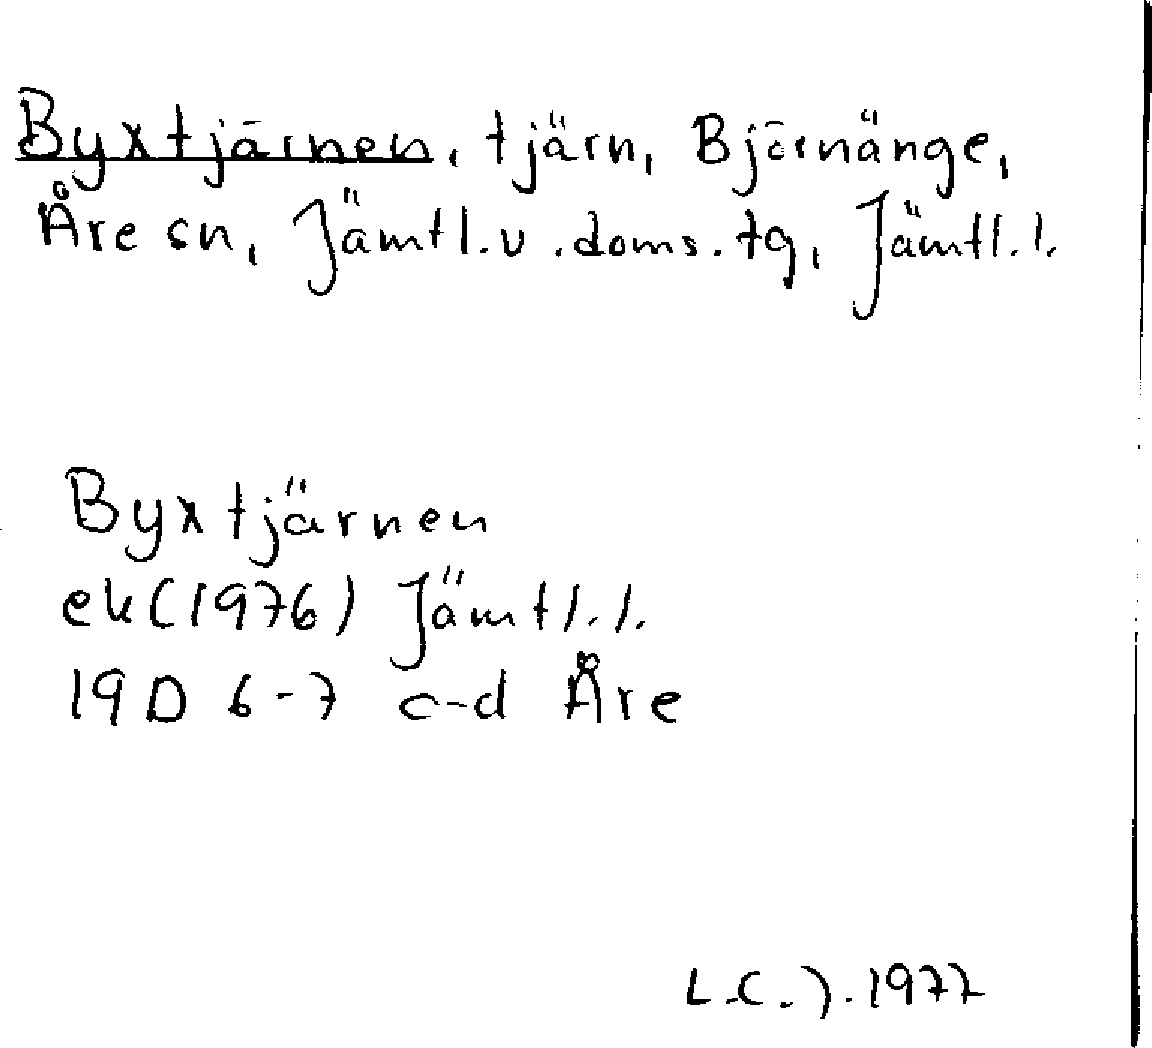 Byxtjärnen, tjärn, Björnänge,
Åre sn, Jämtl.v.doms.tg, Jämtl.l.
Byxtjärnen
ek(1976) Jämtl.l.
19D 6-7 c-d Åre
L.C.J. 1977